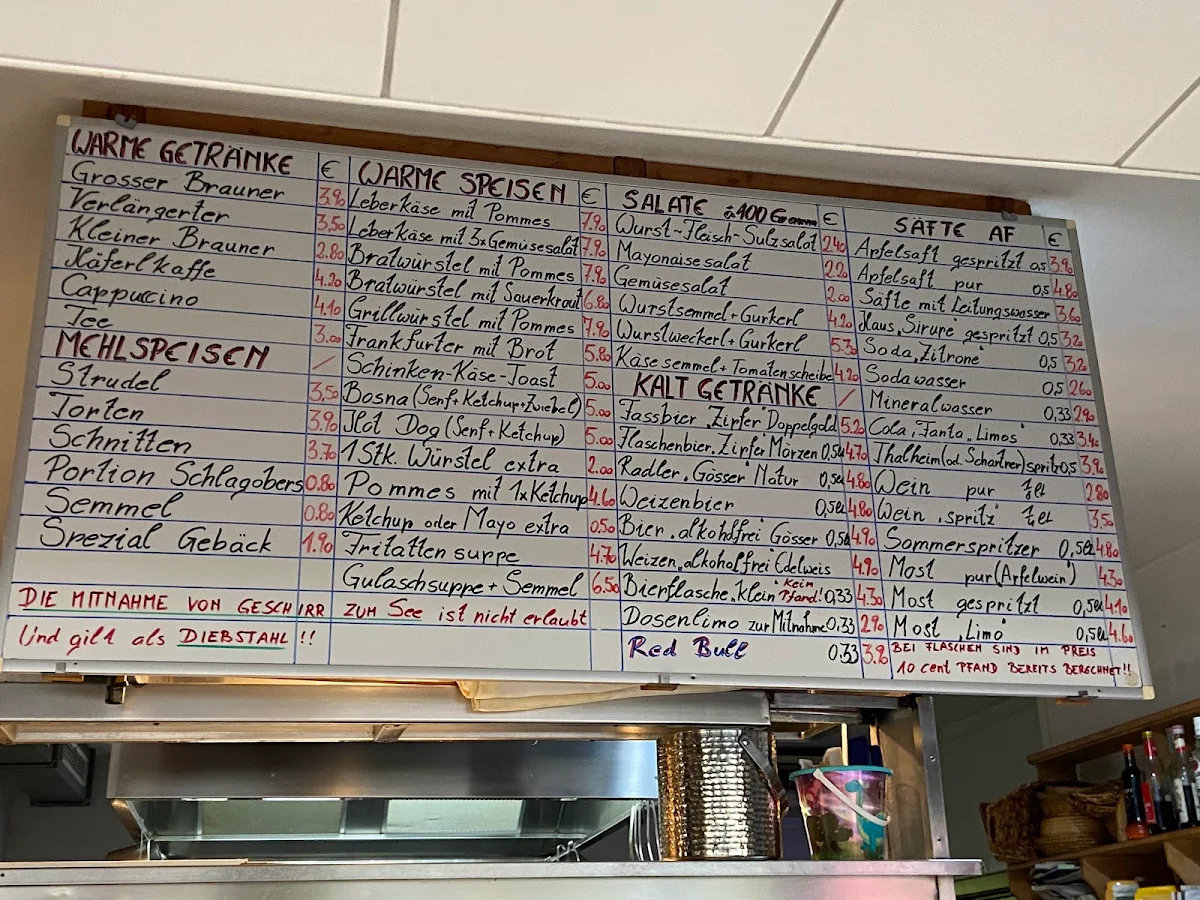 WARME GETRÄNKE €
Grosser Brauner 3.90
Verlängerter 3.50
Kleiner Brauner 2.80
Käferlkaffe 4.20
Cappuccino 4.10
Tee 3.00
MEHLSPEISEN /
Strudel 3.50
Torten 3.90
Schnitten 3.70
Portion Schlagobers 0.80
Semmel 0.80
Spezial Gebäck 1.90
WARME SPEISEN €
Leberkäse mit Pommes 7.90
Leberkäse mit 3x Gemüsesalat 7.90
Bratwürstel mit Pommes 7.90
Bratwürstel mit Sauerkraut 6.80
Grillwürstel mit Pommes 7.90
Frankfurter mit Brot 5.80
Schinken-Käse-Toast 5.00
Bosna (Senf+Ketchup+Zwiebel) 5.00
Hot Dog (Senf+Ketchup) 5.00
1 Stk. Würstel extra 2.00
Pommes mit 1x Ketchup 4.60
Ketchup oder Mayo extra 0.50
Fritatten suppe 4.70
Gulaschsuppe + Semmel 6.50
SALATE à 100 Gramm €
Wurst-Fleisch-Sulzsalat 2.40
Mayonaisesalat 2.20
Gemüsesalat 2.00
Wurstsemmel + Gurkerl 4.20
Wurstweckerl + Gurkerl 5.30
Käsesemmel + Tomatenscheibe 4.20
KALT GETRÄNKE /
Fassbier "Zipfer" Doppelgold 5.20
Flaschenbier "Zipfer" Märzen 0,5l 4.70
Radler "Gösser" Natur 0,5l 4.80
Weizenbier 0,5l 4.80
Bier "alkoholfrei" Gösser 0,5l 4.90
Weizen "alkoholfrei" Edelweis 4.90
Bierflasche "klein" kein Pfand! 0,33 4.30
Dosenlimo zur Mitnahme 0,33 2.90
Red Bull 0.33 3.90
SÄFTE AF €
Apfelsaft gespritzt 0,5 3.90
Apfelsaft pur 0,5 4.80
Säfte mit Leitungswasser 3.60
Haus "Sirupe" gespritzt 0,5 3.20
Soda "Zitrone" 0,5 3.20
Sodawasser 0,5 2.60
Mineralwasser 0,33 2.90
Cola, Fanta, "Limos" 0,33 3.40
Thalheim (od. Schartner) spritz 0,5 3.90
Wein pur 2.80
Wein "spritz" 3.50
Sommerspritzer 0,5l 4.80
Most pur (Apfelwein) 4.30
Most gespritzt 0,5l 4.10
Most "Limo" 0,5l 4.60
BEI FLASCHEN SIND IM PREIS
10 cent PFAND BEREITS BERECHNET!!
DIE MITNAHME VON GESCHIRR ZUM See ist nicht erlaubt
Und gilt als DIEBSTAHL !!